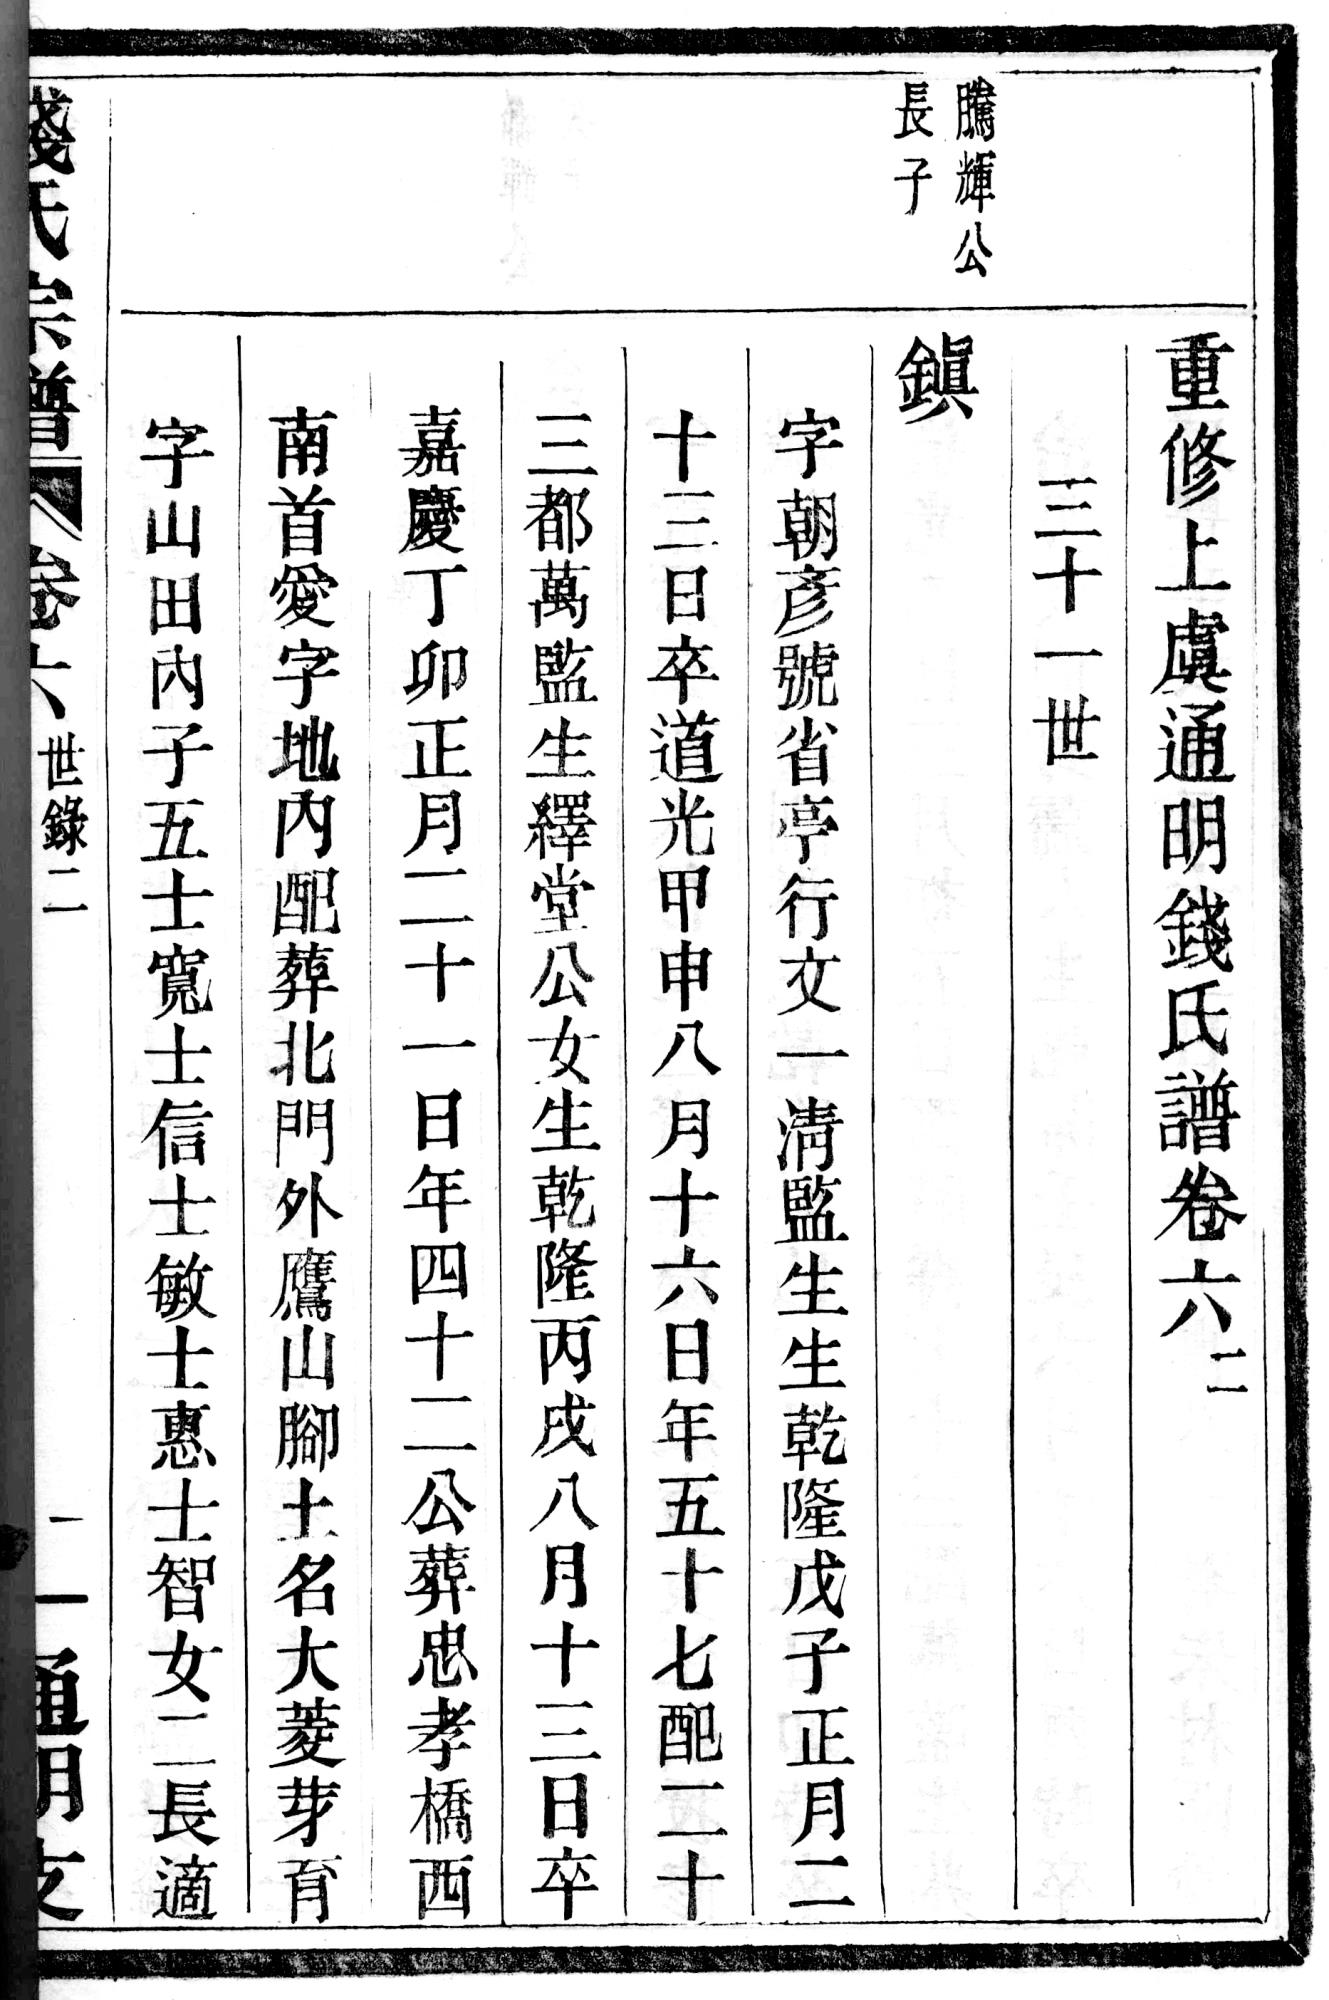 重修上虞通明錢氏譜卷六二
三十一世
騰輝公
長子
鎭
字朝彥號省亭行文一淸監生生乾隆戊子正月二
十三日卒道光甲申八月十六日年五十七配二十
三都萬監生繹堂公女生乾隆丙戌八月十三日卒
嘉慶丁卯正月二十一日年四十二公葬忠孝橋西
南首愛字地內配葬北門外鷹山腳土名大菱芽育
字山田內子五士寬士信士敏士惠士智女二長適
錢氏宗譜 卷六 世錄二 一 通明支